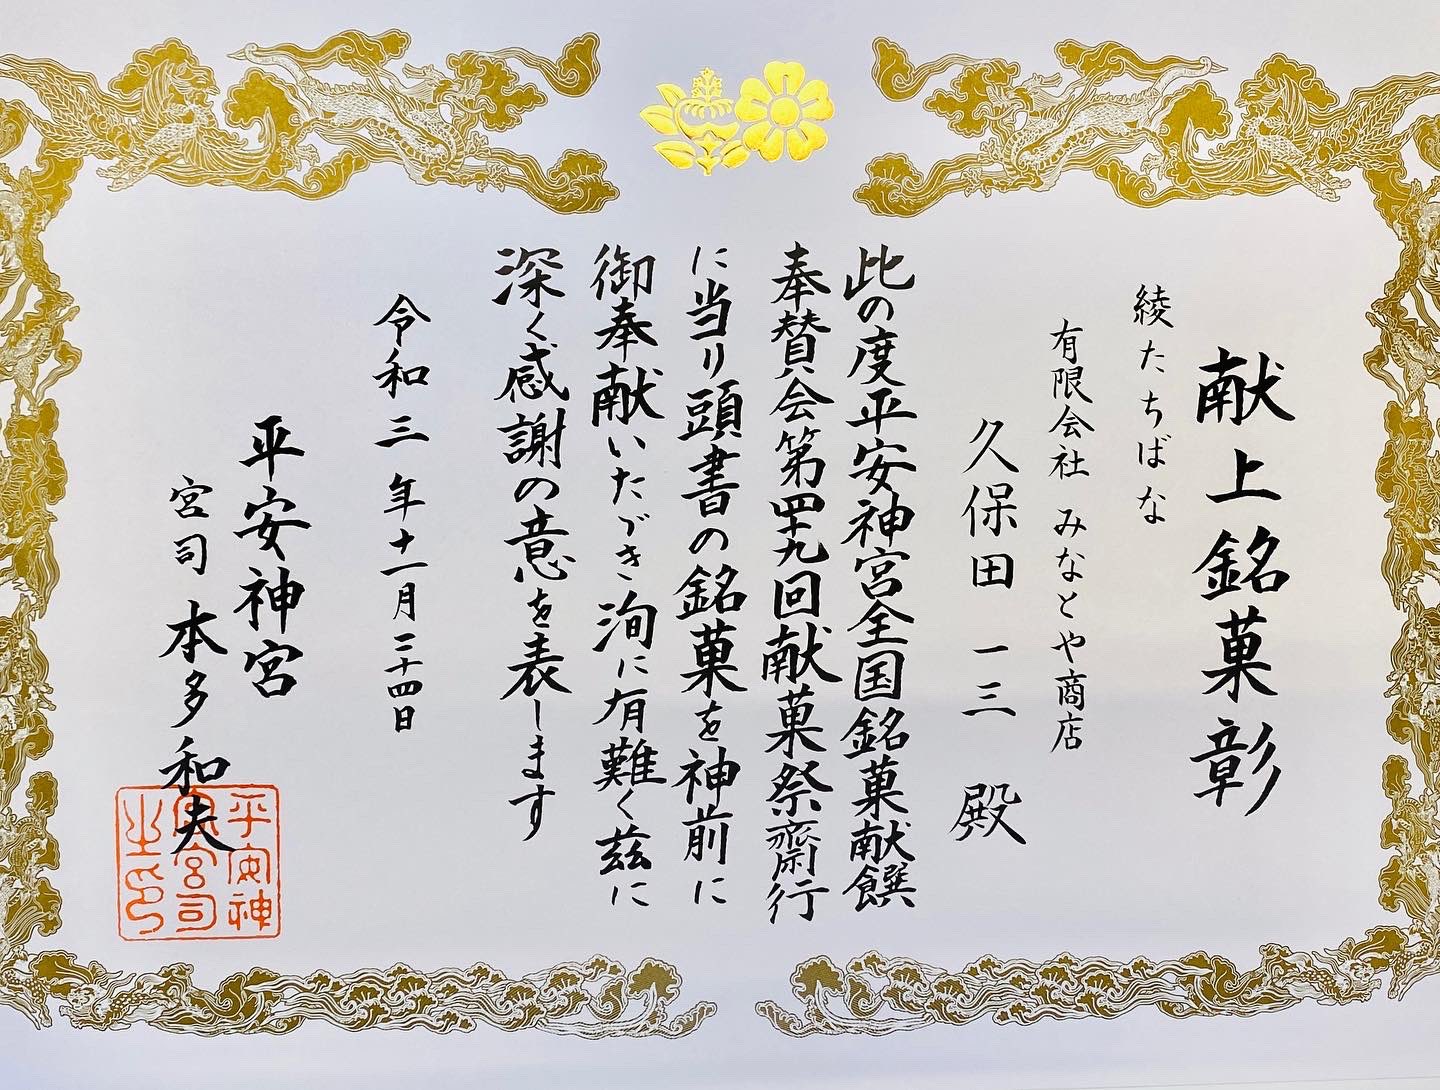 献上銘菓彰
綾たちばな
有限会社 みなとや商店
久保田 一三 殿
此の度平安神宮全国銘菓献饌
奉賛会第四十九回献菓祭齋行
に当り頭書の銘菓を神前に
御奉献いたゞき洵に有難く茲に
深く感謝の意を表します
令和三年十一月二十四日
平安神宮
宮司 本多和夫
平安神
宮宮司
之印